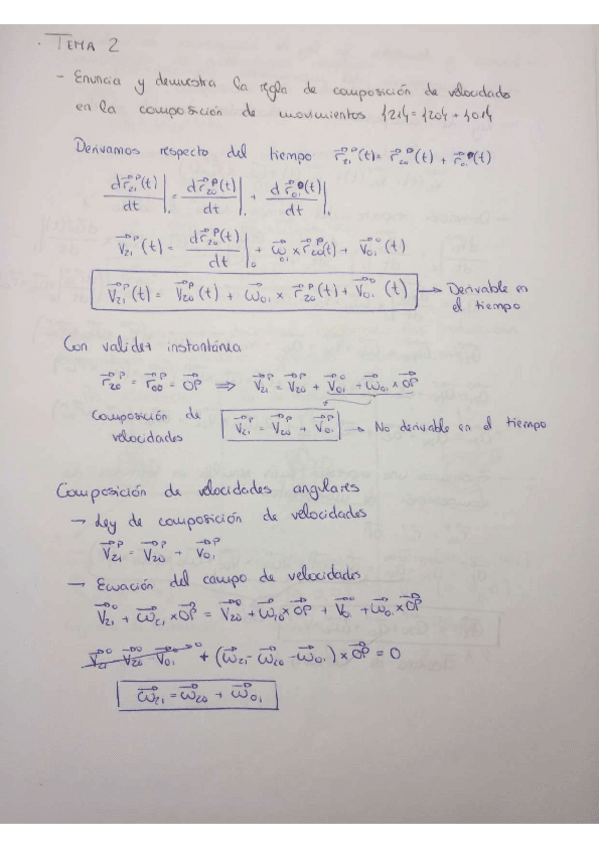 · TEMA 2
- Enuncia y demuestra la regla de composición de velocidades
en la composición de movimientos {21} = {20} + {01}
Derivamos respecto del tiempo r⃗₂₁ᴾ(t) = r⃗₂₀ᴾ(t) + r⃗₀₁ᴼ(t)
dr⃗₂₁ᴾ(t)/dt |₁ = dr⃗₂₀ᴾ(t)/dt |₁ + dr⃗₀₁ᴼ(t)/dt |₁
v⃗₂₁ᴾ(t) = dr⃗₂₀ᴾ(t)/dt |₀ + ω⃗₀₁ × r⃗₂₀ᴾ(t) + v⃗₀₁ᴼ(t)
v⃗₂₁ᴾ(t) = v⃗₂₀ᴾ(t) + ω⃗₀₁ × r⃗₂₀ᴾ(t) + v⃗₀₁ᴼ(t) → Derivable en
el tiempo
Con validez instantánea
r⃗₂₀ᴾ = r⃗₀₀ᴾ = OP⃗ ⇒ v⃗₂₁ᴾ = v⃗₂₀ᴾ + v⃗₀₁ᴼ + ω⃗₀₁ × OP⃗
Composición de
velocidades
v⃗₂₁ᴾ = v⃗₂₀ᴾ + v⃗₀₁ᴾ → No derivable en el tiempo
Composición de velocidades angulares
→ Ley de composición de velocidades
v⃗₂₁ᴾ = v⃗₂₀ᴾ + v⃗₀₁ᴾ
→ Ecuación del campo de velocidades
v⃗₂₁ᴼ + ω⃗₂₁ × OP⃗ = v⃗₂₀ᴼ + ω⃗₂₀ × OP⃗ + v⃗₀ᴼ + ω⃗₀₁ × OP⃗
v⃗₂₁ᴼ v⃗₂₀ᴼ v⃗₀₁ᴼ → 0 + (ω⃗₂₁ - ω⃗₂₀ - ω⃗₀₁) × OP⃗ = 0
ω⃗₂₁ = ω⃗₂₀ + ω⃗₀₁